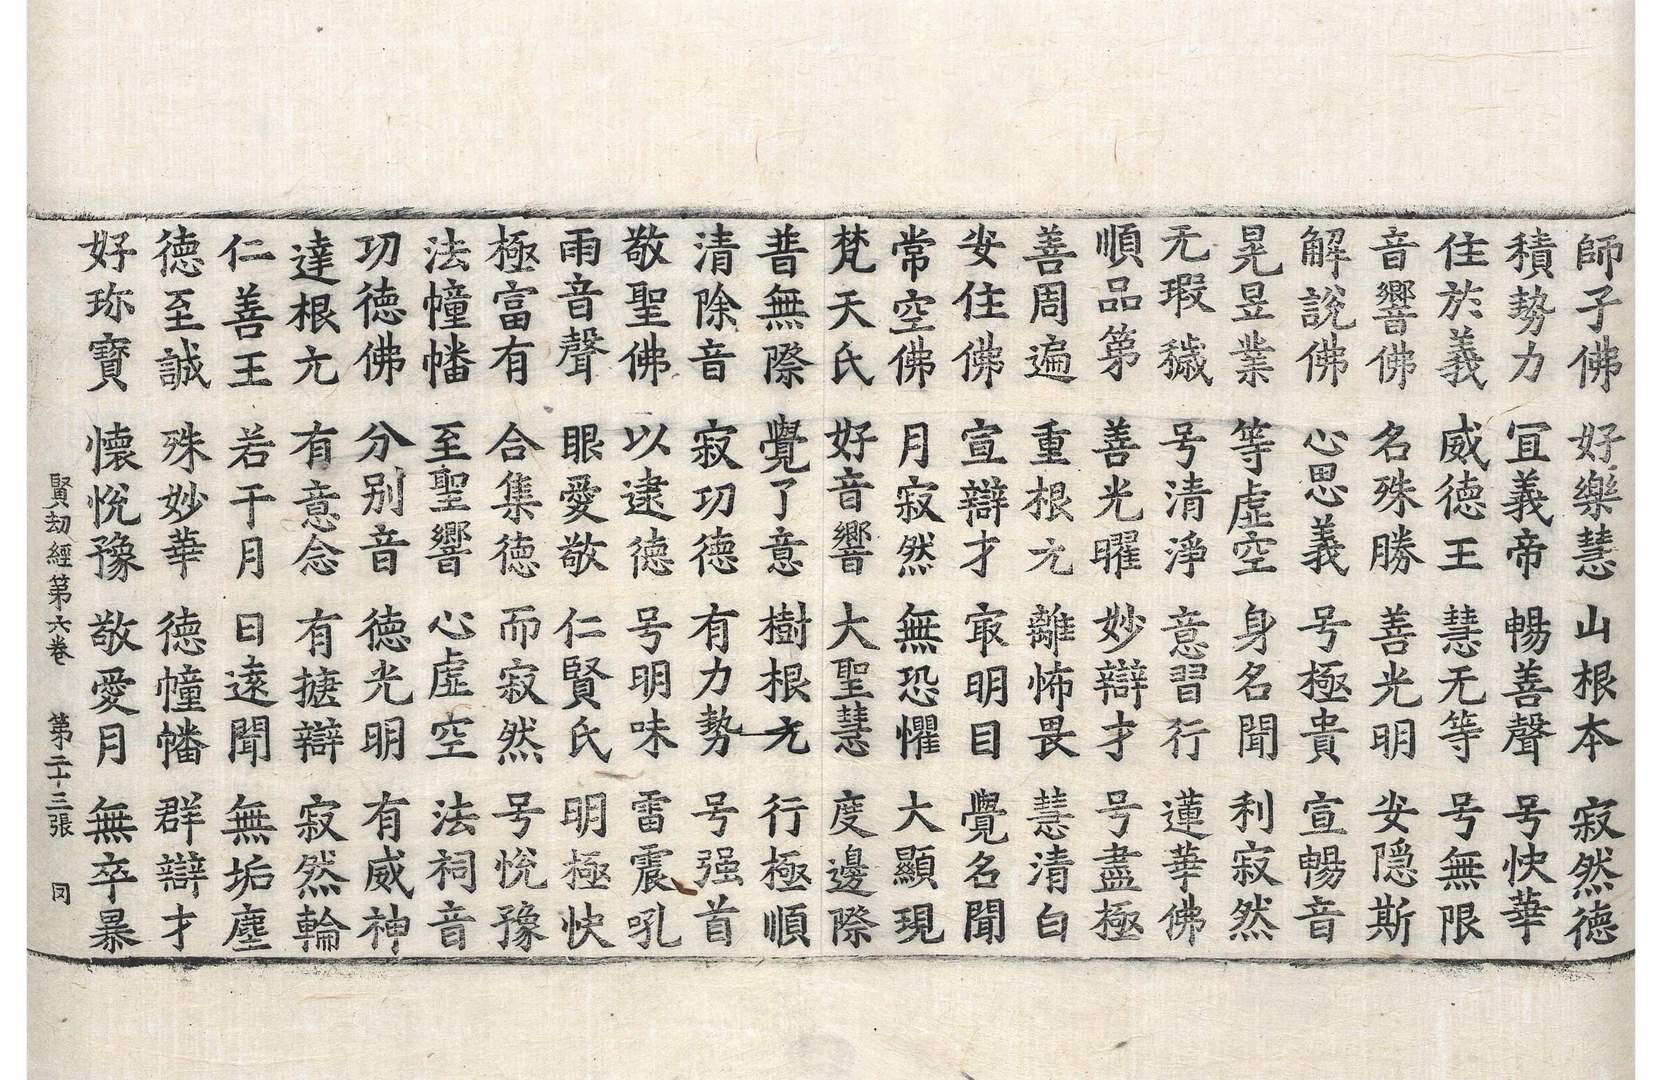 師子佛 好樂慧 山根本 寂然德
積勢力 冝義帝 暢善聲 号快華
住於義 威德王 慧无等 号無限
音響佛 名殊勝 善光明 安隱斯
解說佛 心思義 号極貴 宣暢音
晃昱業 等虛空 身名聞 利寂然
无瑕穢 号清淨 意習行 蓮華佛
順品第 善光曜 妙辯才 号盡極
善周遍 重根元 離怖畏 慧清白
安住佛 宣辯才 㝡明目 覺名聞
常空佛 月寂然 無恐懼 大顯現
梵天氏 好音響 大聖慧 度邊際
普無際 覺了意 樹根元 行極順
清除音 寂功德 有力勢 号强首
敬聖佛 以逮德 号明味 雷震吼
雨音聲 眼愛敬 仁賢氏 明極快
極富有 合集德 而寂然 号悅豫
法幢幡 至聖響 心虛空 法祠音
功德佛 分别音 德光明 有威神
達根元 有意念 有㨿辯 寂然輪
仁善王 若干月 日遠聞 無垢塵
德至誠 殊妙華 德幢幡 群辯才
好珎寶 懷悅豫 敬愛月 無卒暴
賢劫經第六卷 第二十三張 冈